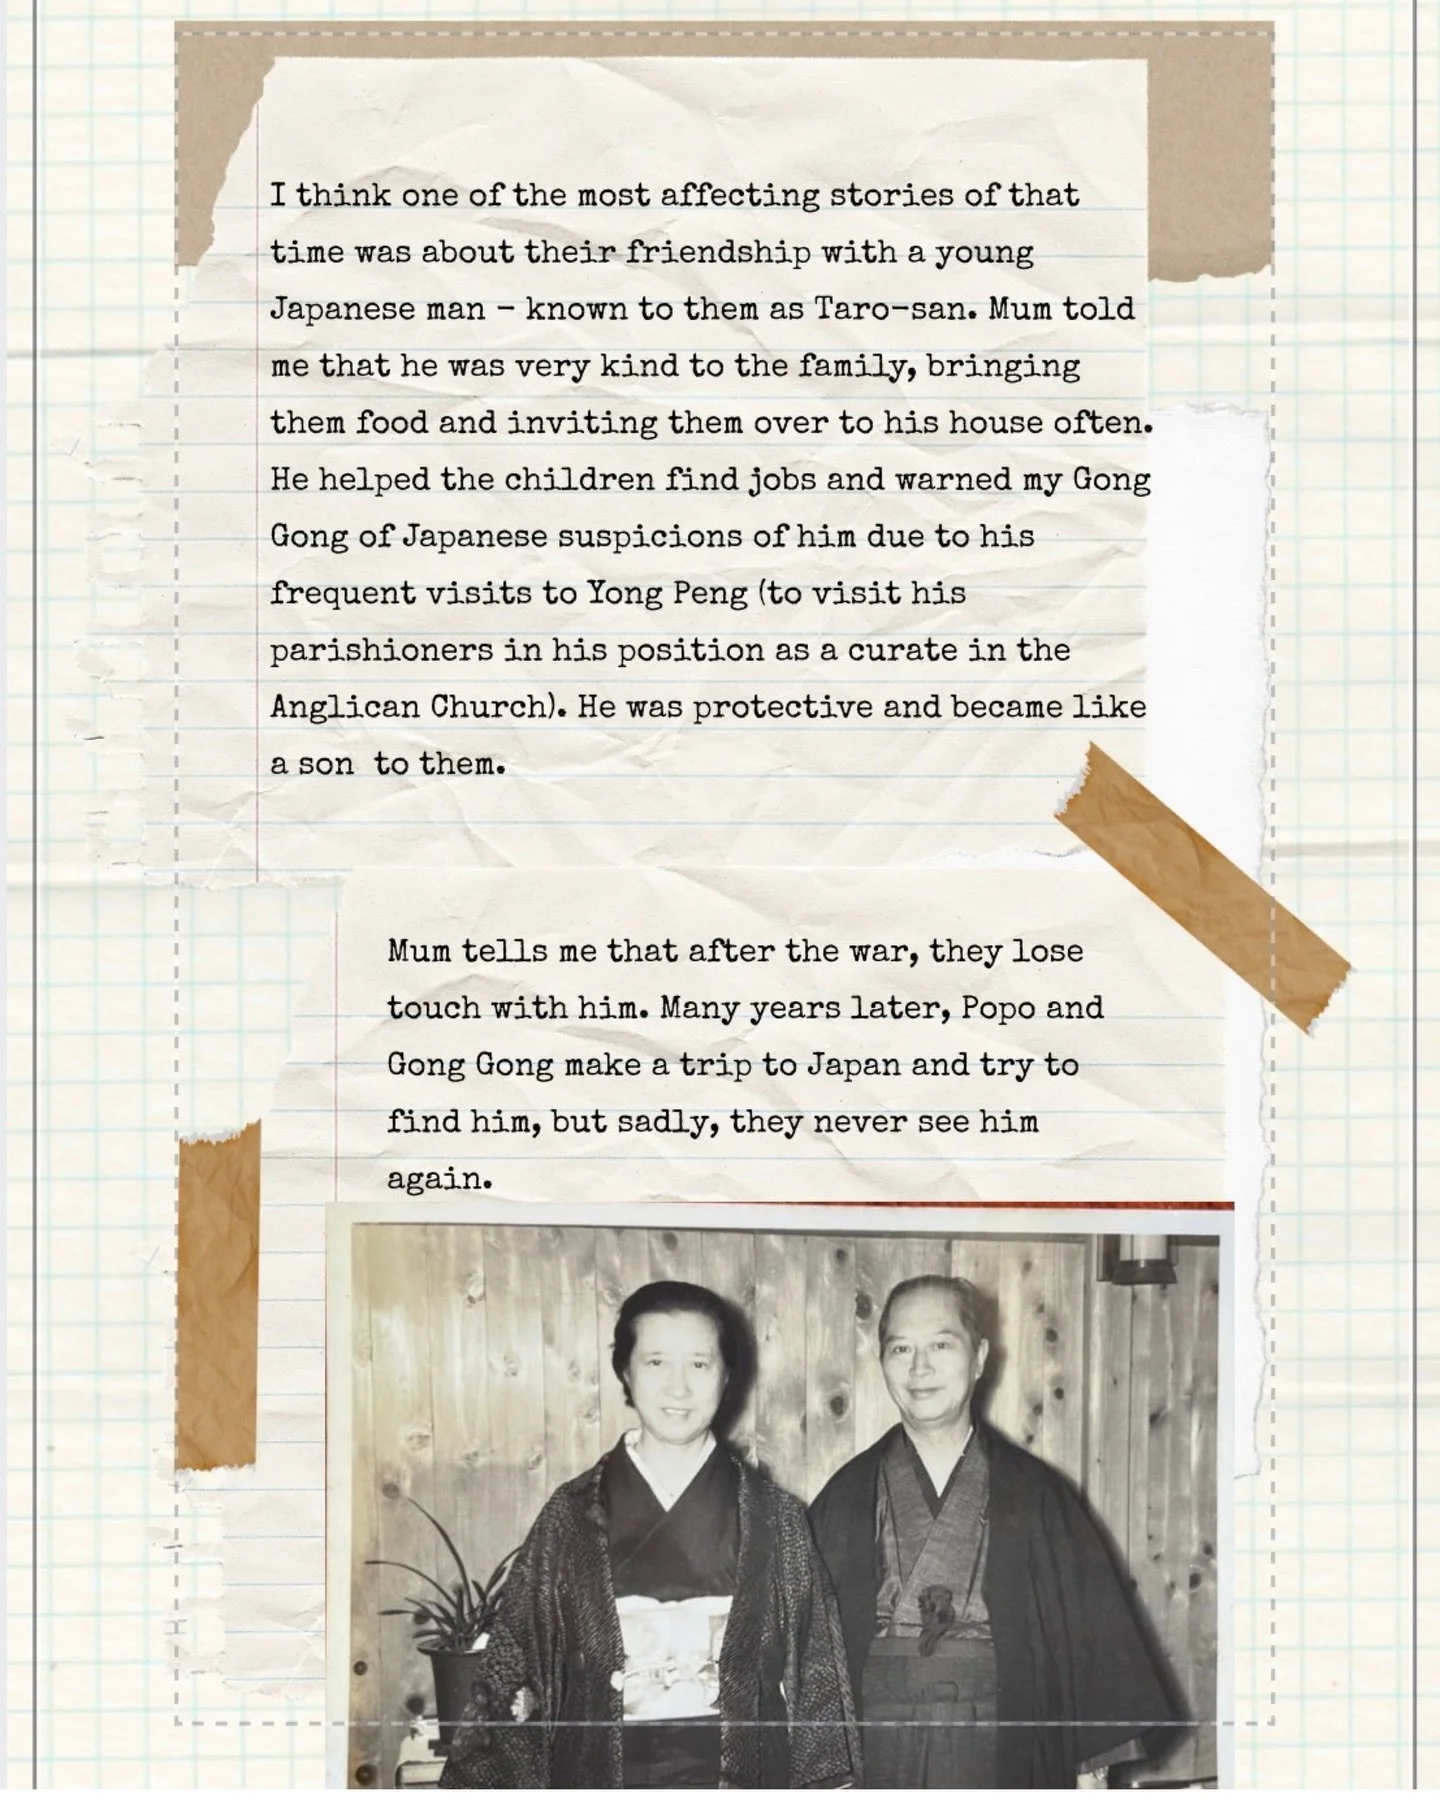 I think one of the most affecting stories of that
time was about their friendship with a young
Japanese man - known to them as Taro-san. Mum told
me that he was very kind to the family, bringing
them food and inviting them over to his house often.
He helped the children find jobs and warned my Gong
Gong of Japanese suspicions of him due to his
frequent visits to Yong Peng (to visit his
parishioners in his position as a curate in the
Anglican Church). He was protective and became like
a son  to them.
Mum tells me that after the war, they lose
touch with him. Many years later, Popo and
Gong Gong make a trip to Japan and try to
find him, but sadly, they never see him
again.